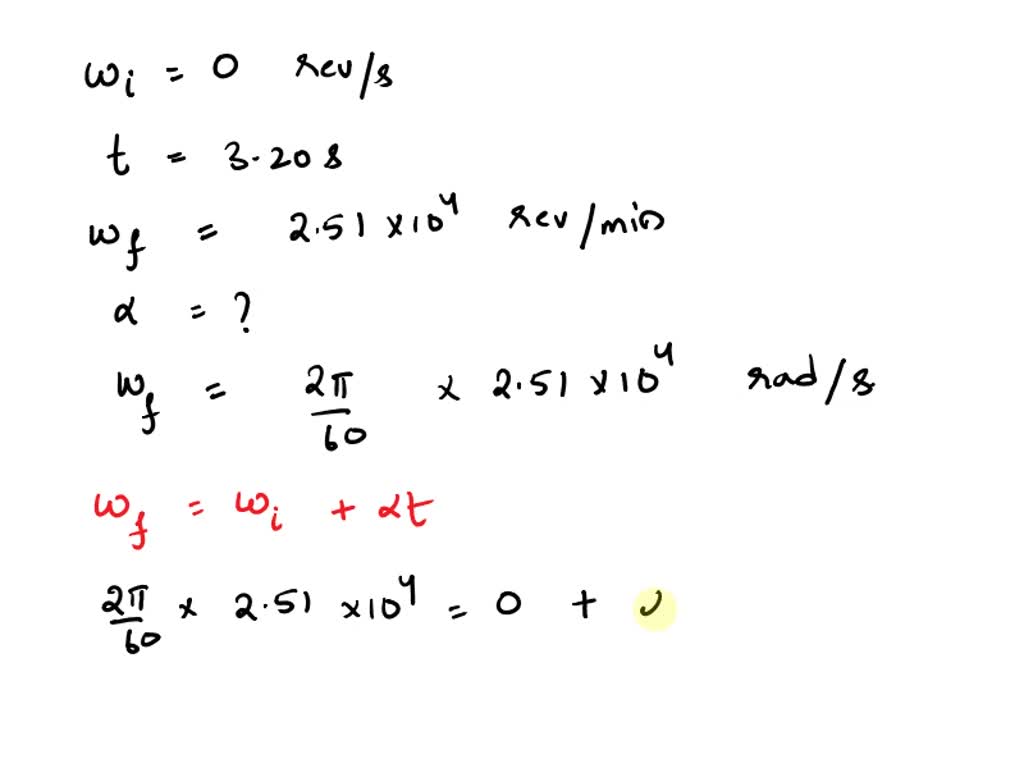 ωi = 0 rev/s
t = 3.20 s
ωf = 2.51 × 10⁴ rev/min
α = ?
ωf = 2π/60 × 2.51 × 10⁴ rad/s
ωf = ωi + αt
2π/60 × 2.51 × 10⁴ = 0 +